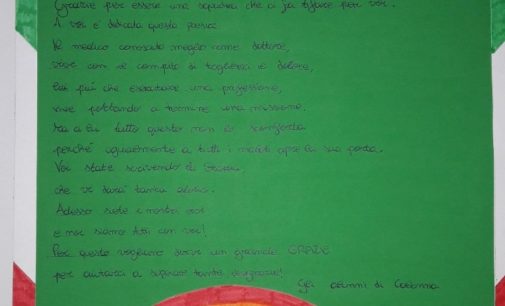 Grazie per essere una squadra che ci fa tifare per voi.
A voi è dedicata questa poesia.
Il medico conosciuto meglio come dottore,
deve con il compito di togliere il dolore,
lui più che esercitare una professione,
vive portando a termine una missione.
Ma a lui tutto questo non lo sconforta
perchè ugualmente a tutti i malati apre la sua porta.
Voi state scrivendo la storia,
che vi darà tanta gloria.
Adesso siete i nostri eroi
e noi siamo tutti con voi!
Per questo vogliamo dirvi un grande GRAZIE
per aiutarci a superare tante disgrazie!
Gli alunni di Cosenza